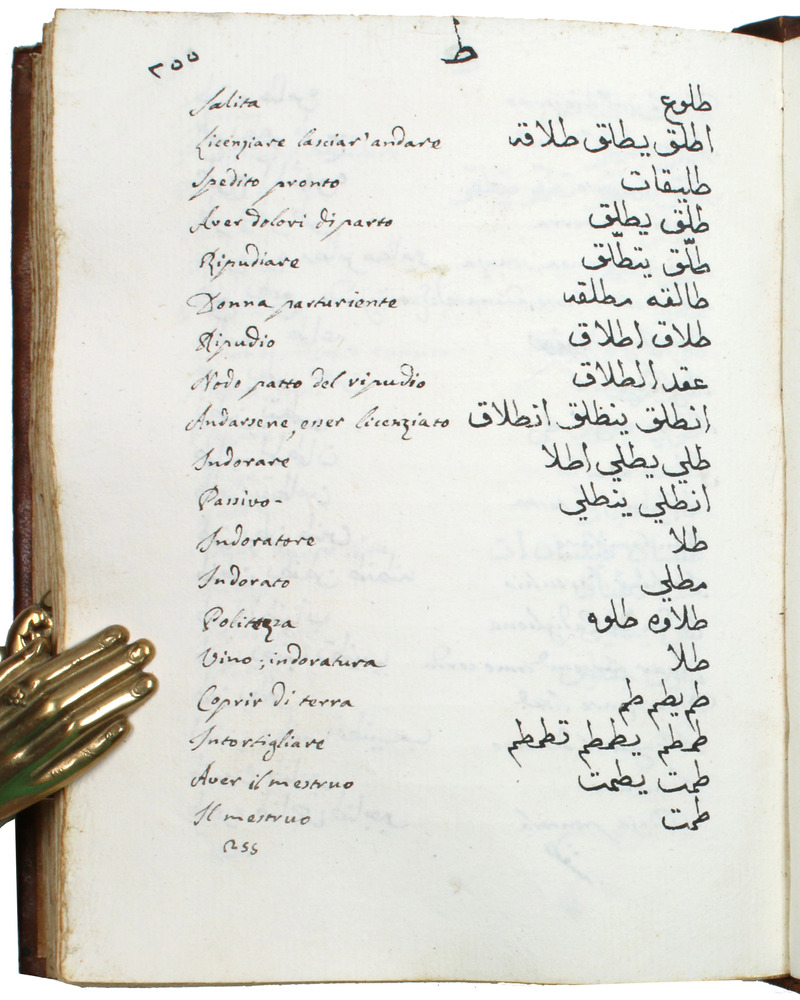 ٢٥٥ ط
Salita طلوع
Licenziare lasciar' andare اطلق يطلق طلاقه
Spedito pronto طليقات
Aver dolori di parto طلق يطلق
Ripudiare طلّق يتطلّق
Donna parturiente طالقه مطلقه
Ripudio طلاق اطلاق
Nodo patto del ripudio عقد الطلاق
Andarsene, esser licenziato انطلق ينطلق انطلاق
Indorare طلي يطلي اطلا
Passivo - انطلي ينطلي
Indoratore طلا
Indorato مطلي
Politezza طلاوه طلوه
Vino; indoratura طلا
Coprir di terra طم يطم طم
Intortigliare طمطم يطمطم تطمطم
Aver il mestruo طمت يطمت
Il mestruo طمت
255